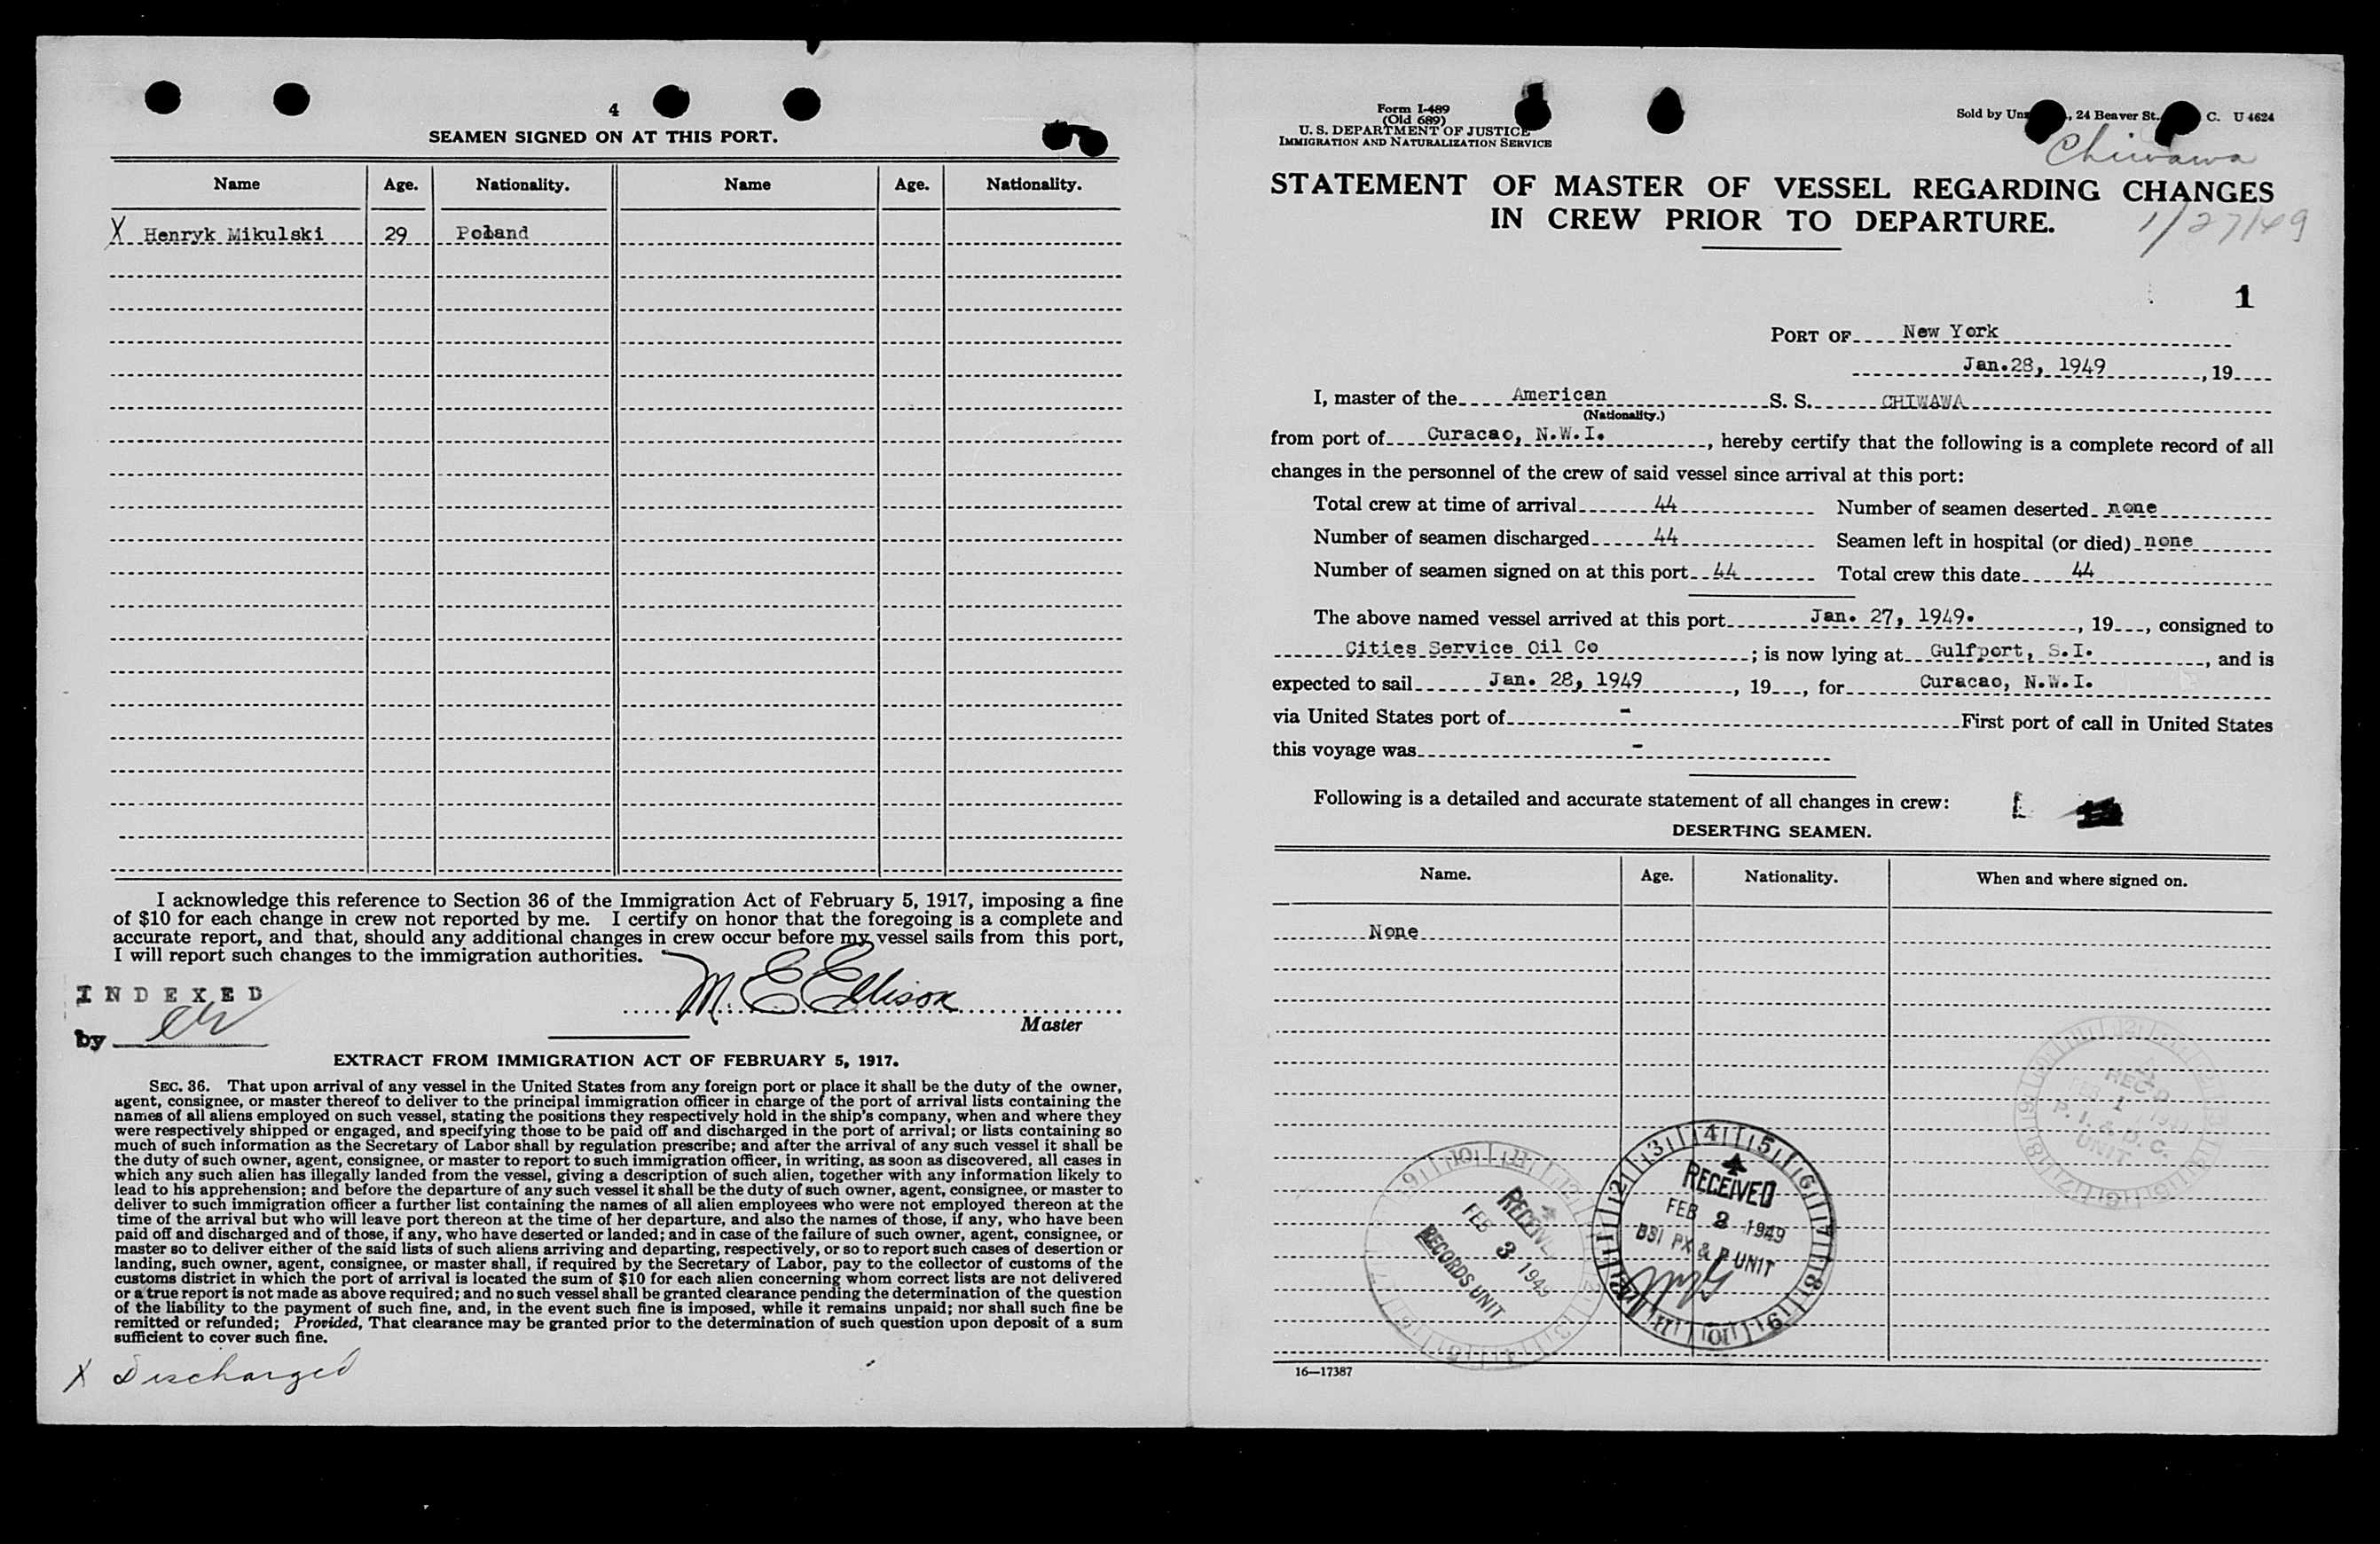 4
SEAMEN SIGNED ON AT THIS PORT.
Name Age. Nationality. Name Age. Nationality.
X Henryk Mikulski 29 Poland
I acknowledge this reference to Section 36 of the Immigration Act of February 5, 1917, imposing a fine
of $10 for each change in crew not reported by me. I certify on honor that the foregoing is a complete and
accurate report, and that, should any additional changes in crew occur before my vessel sails from this port,
I will report such changes to the immigration authorities.
M. E Ellison
Master
INDEXED
by
EXTRACT FROM IMMIGRATION ACT OF FEBRUARY 5, 1917.
SEC. 36. That upon arrival of any vessel in the United States from any foreign port or place it shall be the duty of the owner,
agent, consignee, or master thereof to deliver to the principal immigration officer in charge of the port of arrival lists containing the
names of all aliens employed on such vessel, stating the positions they respectively hold in the ship's company, when and where they
were respectively shipped or engaged, and specifying those to be paid off and discharged in the port of arrival; or lists containing so
much of such information as the Secretary of Labor shall by regulation prescribe; and after the arrival of any such vessel it shall be
the duty of such owner, agent, consignee, or master to report to such immigration officer, in writing, as soon as discovered, all cases in
which any such alien has illegally landed from the vessel, giving a description of such alien, together with any information likely to
lead to his apprehension; and before the departure of any such vessel it shall be the duty of such owner, agent, consignee, or master to
deliver to such immigration officer a further list containing the names of all alien employees who were not employed thereon at the
time of the arrival but who will leave port thereon at the time of her departure, and also the names of those, if any, who have been
paid off and discharged and of those, if any, who have deserted or landed; and in case of the failure of such owner, agent, consignee, or
master so to deliver either of the said lists of such aliens arriving and departing, respectively, or so to report such cases of desertion or
landing, such owner, agent, consignee, or master shall, if required by the Secretary of Labor, pay to the collector of customs of the
customs district in which the port of arrival is located the sum of $10 for each alien concerning whom correct lists are not delivered
or a true report is not made as above required; and no such vessel shall be granted clearance pending the determination of the question
of the liability to the payment of such fine, and, in the event such fine is imposed, while it remains unpaid; nor shall such fine be
remitted or refunded; Provided, That clearance may be granted prior to the determination of such question upon deposit of a sum
sufficient to cover such fine.
X Discharged
Form I-489
(Old 689)
U. S. DEPARTMENT OF JUSTICE
IMMIGRATION AND NATURALIZATION SERVICE
Sold by 24 Beaver St. C. U 4624
Chiwawa
STATEMENT OF MASTER OF VESSEL REGARDING CHANGES
IN CREW PRIOR TO DEPARTURE.
1/27/49
1
PORT OF New York
Jan.28, 1949, 19
I, master of the American S. S. CHIWAWA
(Nationality.)
from port of Curacao, N.W.I., hereby certify that the following is a complete record of all
changes in the personnel of the crew of said vessel since arrival at this port:
Total crew at time of arrival 44 Number of seamen deserted none
Number of seamen discharged 44 Seamen left in hospital (or died) none
Number of seamen signed on at this port 44 Total crew this date 44
The above named vessel arrived at this port Jan. 27, 1949., 19, consigned to
Cities Service Oil Co; is now lying at Gulfport, S.I., and is
expected to sail Jan. 28, 1949, 19, for Curacao, N.W.I.
via United States port of - First port of call in United States
this voyage was -
Following is a detailed and accurate statement of all changes in crew:
DESERTING SEAMEN.
Name. Age. Nationality. When and where signed on.
None
REC'D
FEB 1 1949
P. I. & D. C.
UNIT
RECEIVED
FEB 2 1949
BSI PX & P UNIT
RECEIVE
FEB 3 1949
RECORDS UNIT
16—17387